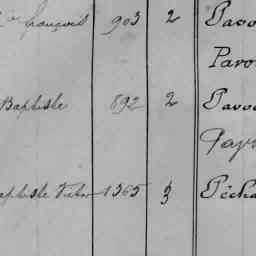 françois 903 2 Pavo
Paro
Baptiste 892 2 Pavo
Pay
aptiste Victor 1365 3 Pécha